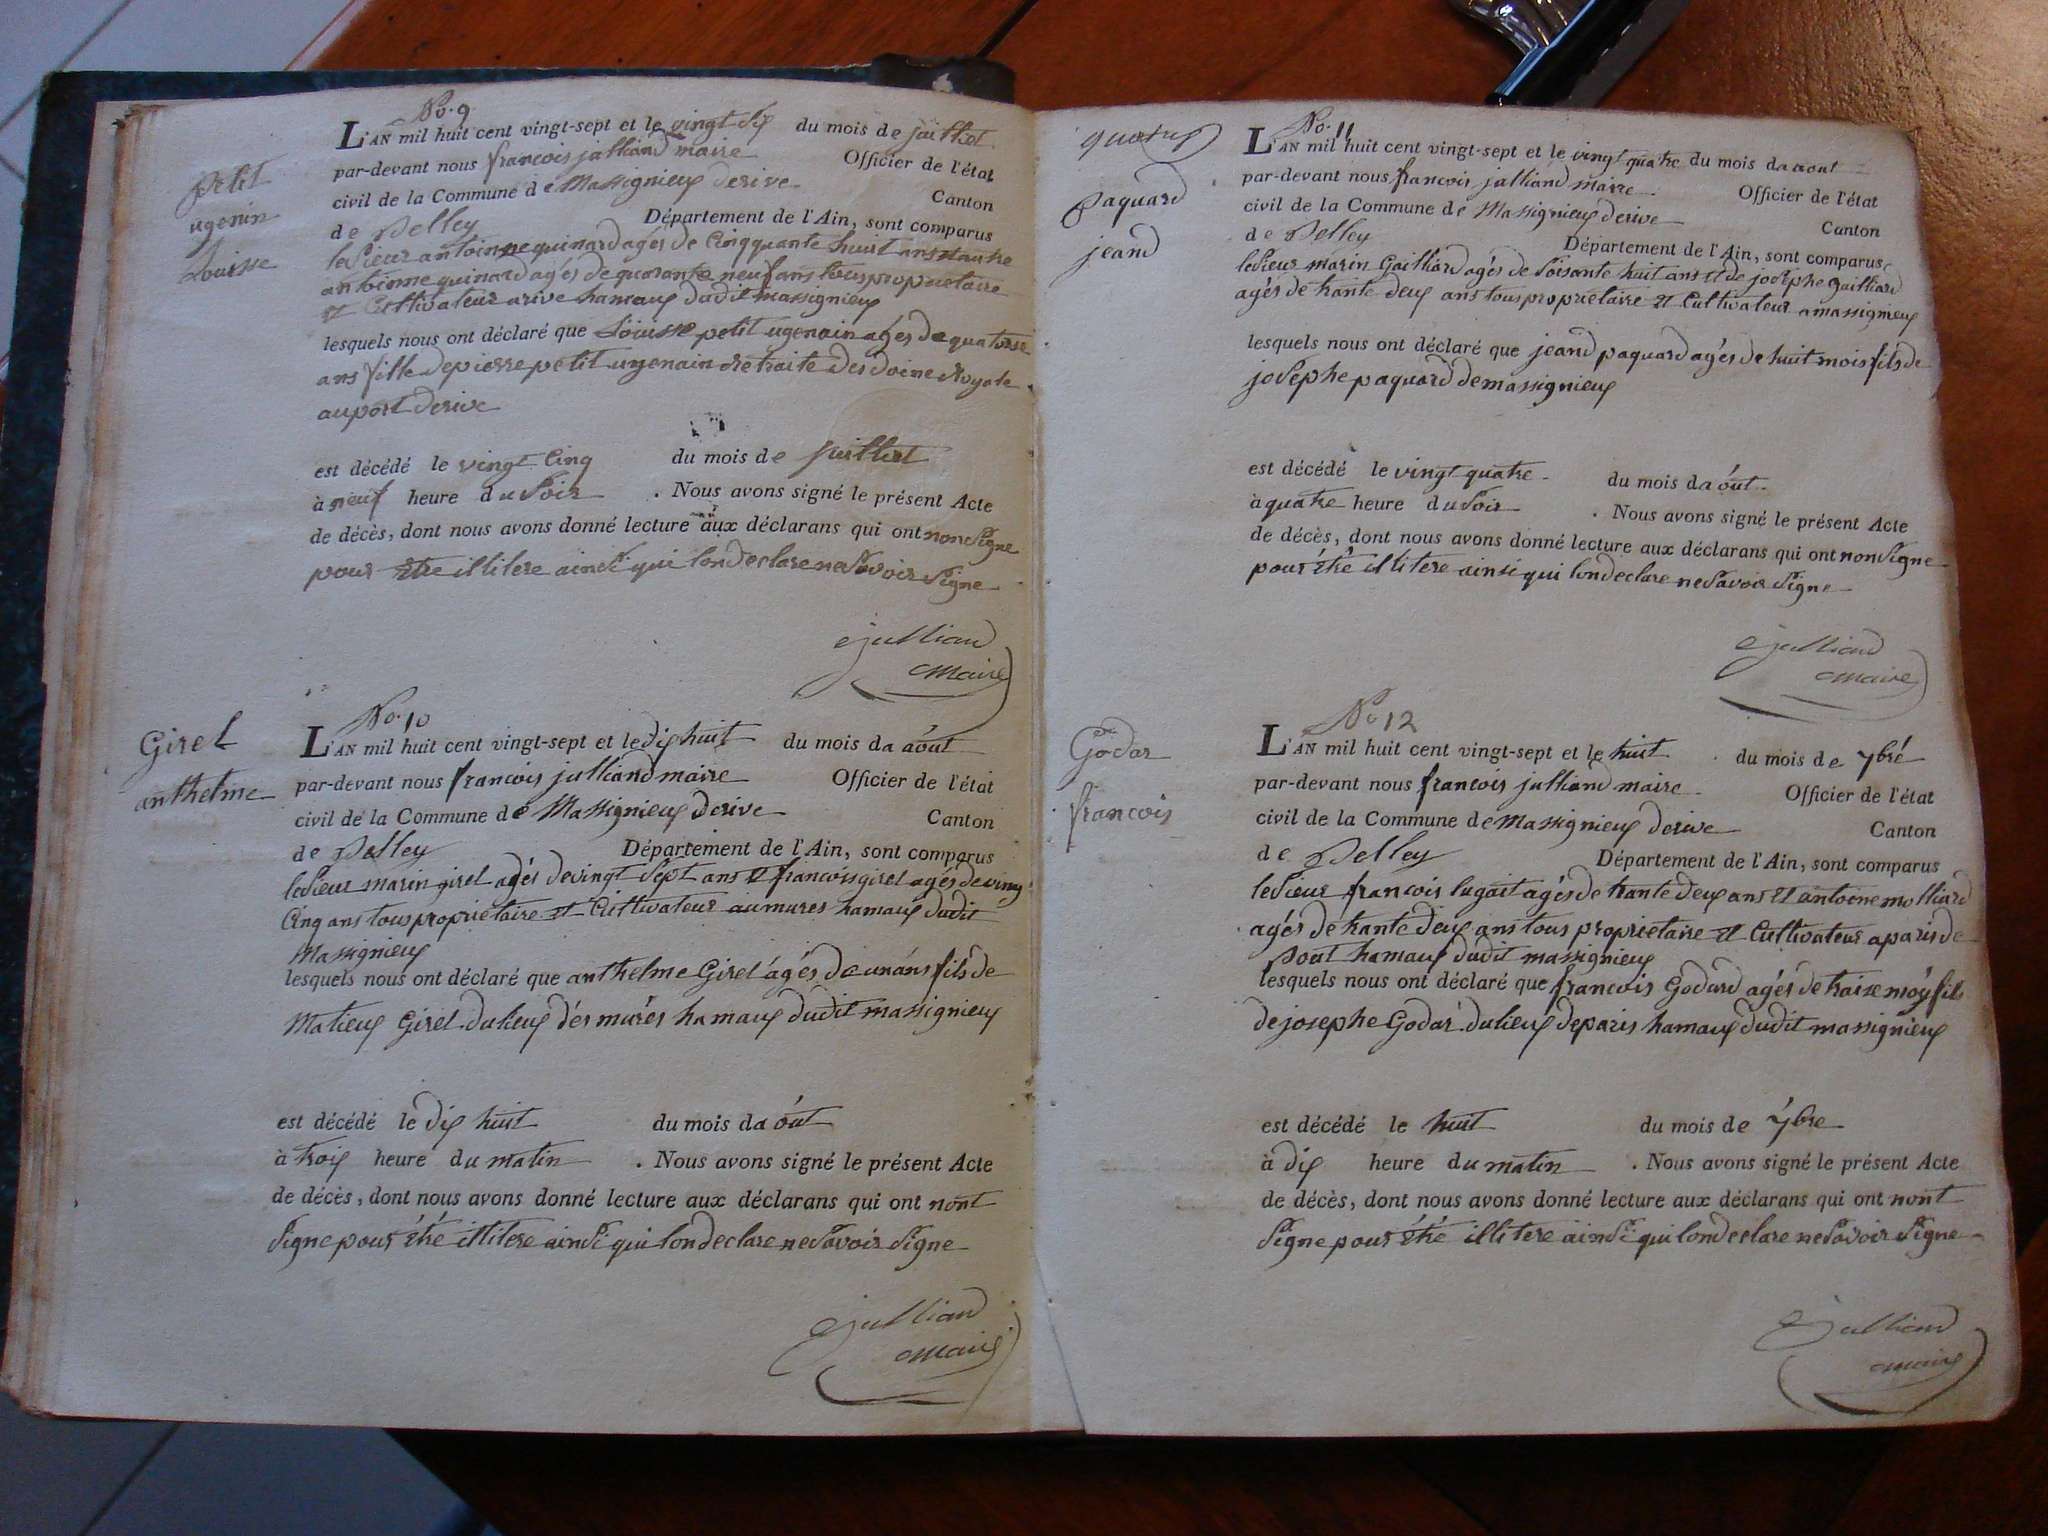 No. 9
L'AN mil huit cent vingt-sept et le vingt Six du mois de juillet
par-devant nous francois julliand maire Officier de l'état
civil de la Commune de Massignieux derive Canton
de Belley Département de l'Ain, sont comparus
petit
ugenin
Louisse
le Sieur antoinne quinard agés de Cinqquante huit ans et autre
antoinne quinard agés de quarante neuf ans tous propriétaire
et Cultivateur a rive hamaux dudit massignieux
lesquels nous ont déclaré que Louisse petit ugenain agés de quatorse
ans fille de pierre petit ugenain retraite des doine Royale
au port derive
est décédé le vingt Cinq du mois de juillet
à neuf heure du Soir . Nous avons signé le présent Acte
de décès, dont nous avons donné lecture aux déclarans qui ont non Signe
pour etre illitere ainsi qui londeclare ne Savoir Signe
julliand
maire
Girel
anthelme
No. 10
L'AN mil huit cent vingt-sept et le dix huit du mois da aóut
par-devant nous francois julliand maire Officier de l'état
civil de la Commune de Massignieux derive Canton
de Belley Département de l'Ain, sont comparus
le Sieur marin girel agés de vingt Sept ans et francois girel agés de vingt
Cinq ans tous proprietaire et Cultivateur au mures hamaux dudit
Massignieux
lesquels nous ont déclaré que anthelme Girel agés de un ans fils de
Matieux Girel du lieux dés murés hamaux dudit massignieux
est décédé le dix huit du mois da óut
à troix heure du matin . Nous avons signé le présent Acte
de décès, dont nous avons donné lecture aux déclarans qui ont nont
Signe pour étré illitere ainsi qui londeclare ne Savoir Signe
julliand
maire
paquard
jeand
No. 11
L'AN mil huit cent vingt-sept et le vingt quatre du mois da aout
par-devant nous francois julliand maire Officier de l'état
civil de la Commune de Massignieux derive Canton
de Belley Département de l'Ain, sont comparus
le Sieur marin Gailliard agés de Soisante huit ans et de joséphe gailliard
agés de trante deux ans tous proprietaire et Cultivateur a massignieux
lesquels nous ont déclaré que jeand paquard agés de huit mois fils de
joséphe paquard de massignieux
est décédé le vingt quatre du mois da óut
à quatre heure du Soir . Nous avons signé le présent Acte
de décès, dont nous avons donné lecture aux déclarans qui ont non Signe
pour étré illitere ainsi qui londeclare ne Savoir Signe
julliand
maire
Godar
francois
No 12
L'AN mil huit cent vingt-sept et le huit du mois de 7bré
par-devant nous francois julliand maire Officier de l'état
civil de la Commune de Massignieux derive Canton
de Belley Département de l'Ain, sont comparus
le Sieur francois lugait agés de trante deux ans et antoine molliard
agés de trante deux ans tous proprietaire et Cultivateur a paris de
hamaux dudit massignieux
lesquels nous ont déclaré que francois Godard agés de traize moy fils
de josephe Godar du lieux de paris hamaux dudit massignieux
est décédé le huit du mois de 7bre
à dix heure du matin . Nous avons signé le présent Acte
de décès, dont nous avons donné lecture aux déclarans qui ont nont
Signe pour étré illitere ainsi qui londeclare ne Savoir Signe
julliand
maire